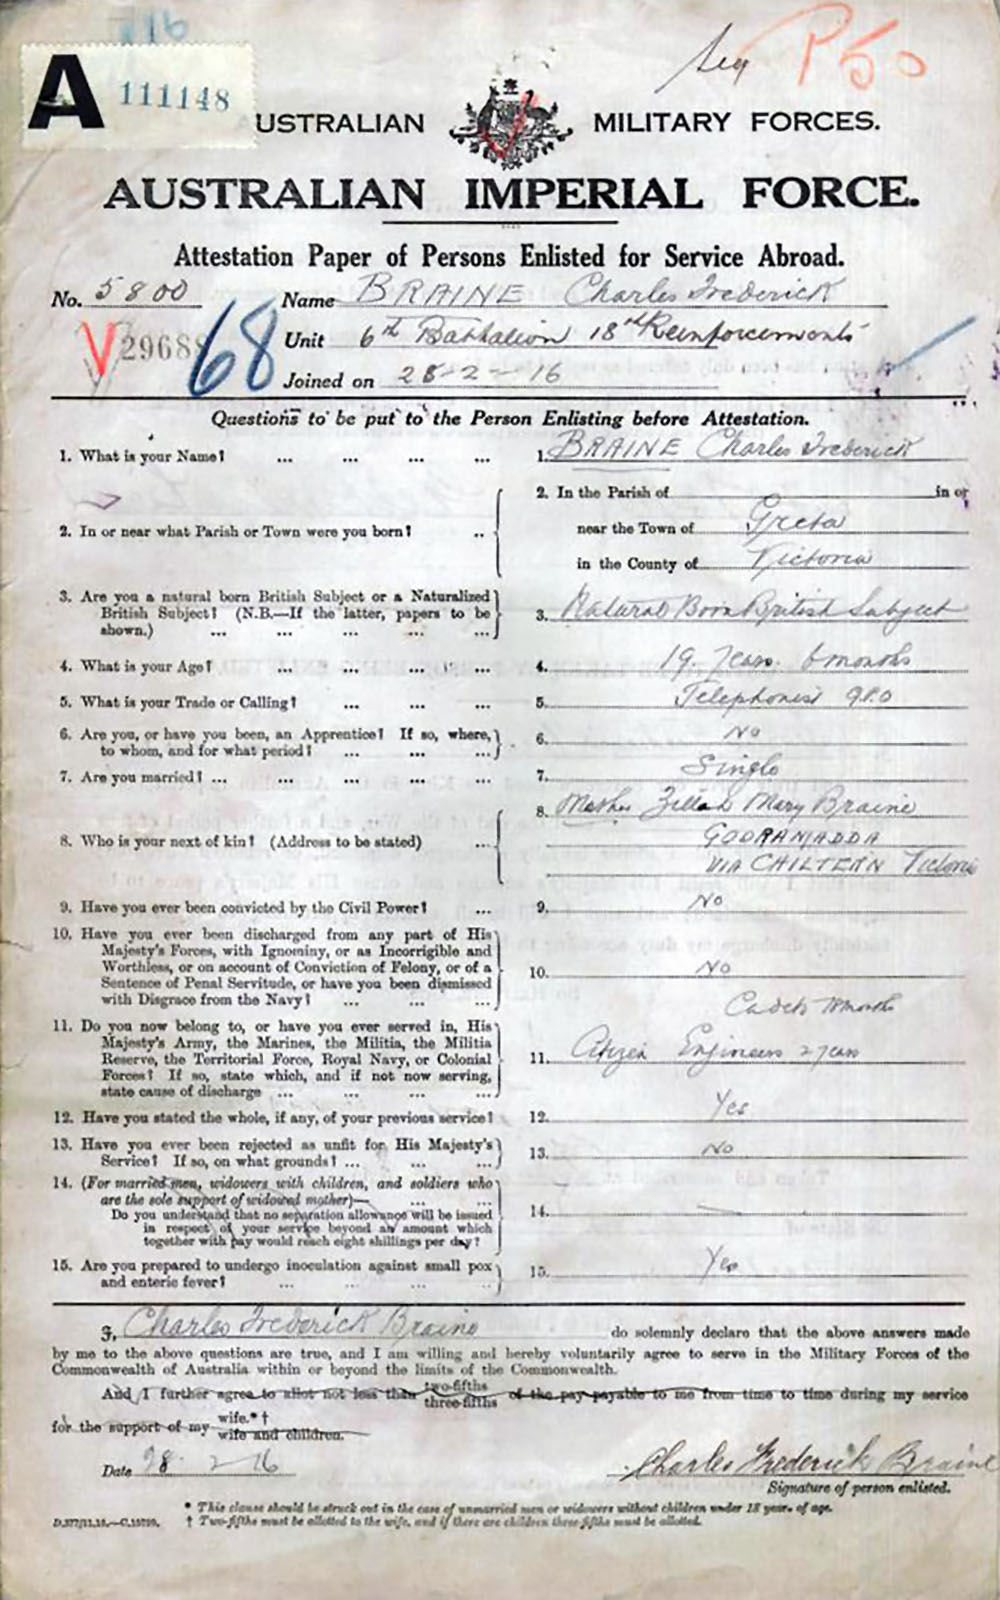 116
A 111148
P50
AUSTRALIAN MILITARY FORCES.
AUSTRALIAN IMPERIAL FORCE.
Attestation Paper of Persons Enlisted for Service Abroad.
No. 5800 Name BRAINE Charles Frederick
V 29688 68 Unit 6th Battalion 18th Reinforcements
Joined on 28-2-16
Questions to be put to the Person Enlisting before Attestation.
1. What is your Name? ... ... ... ... 1. BRAINE Charles Frederick
2. In the Parish of in or
2. In or near what Parish or Town were you born? .. near the Town of Greta
in the County of Victoria
3. Are you a natural born British Subject or a Naturalized
British Subject? (N.B.—If the latter, papers to be 3. Natural Born British Subject
shown.) ... ... ... ...
4. What is your Age? ... ... ... ... 4. 19 years. 6 months
5. What is your Trade or Calling? ... ... ... 5. Telephonist G.P.O
6. Are you, or have you been, an Apprentice? If so, where, 6. No
to whom, and for what period? ... ... ...
7. Are you married? ... ... ... ... ... 7. Single
8. Mother Zillah Mary Braine
8. Who is your next of kin? (Address to be stated) ... GOORAMADDA
VIA CHILTERN Victoria
9. Have you ever been convicted by the Civil Power? ... 9. No
10. Have you ever been discharged from any part of His
Majesty's Forces, with Ignominy, or as Incorrigible and
Worthless, or on account of Conviction of Felony, or of a 10. No
Sentence of Penal Servitude, or have you been dismissed
with Disgrace from the Navy? ... ... ...
Cadets 18 months
11. Do you now belong to, or have you ever served in, His
Majesty's Army, the Marines, the Militia, the Militia
Reserve, the Territorial Force, Royal Navy, or Colonial 11. Citizen Engineers 2 years
Forces? If so, state which, and if not now serving,
state cause of discharge ... ... ... ...
12. Have you stated the whole, if any, of your previous service? 12. Yes
13. Have you ever been rejected as unfit for His Majesty's 13. No
Service? If so, on what grounds? ... ... ...
14. (For married men, widowers with children, and soldiers who
are the sole support of widowed mother)— ... ...
Do you understand that no separation allowance will be issued 14. —
in respect of your service beyond an amount which
together with pay would reach eight shillings per day?
15. Are you prepared to undergo inoculation against small pox 15. Yes
and enteric fever? ... ... ...
I, Charles Frederick Braine do solemnly declare that the above answers made
by me to the above questions are true, and I am willing and hereby voluntarily agree to serve in the Military Forces of the
Commonwealth of Australia within or beyond the limits of the Commonwealth.
And I further agree to allot not less than two-fifths three-fifths of the pay payable to me from time to time during my service
for the support of my wife.*† wife and children.
Date 28. 2 16 Charles Frederick Braine
Signature of person enlisted.
* This clause should be struck out in the case of unmarried men or widowers without children under 18 years of age.
D.377/11.15.—C.15720. † Two-fifths must be allotted to the wife, and if there are children three-fifths must be allotted.